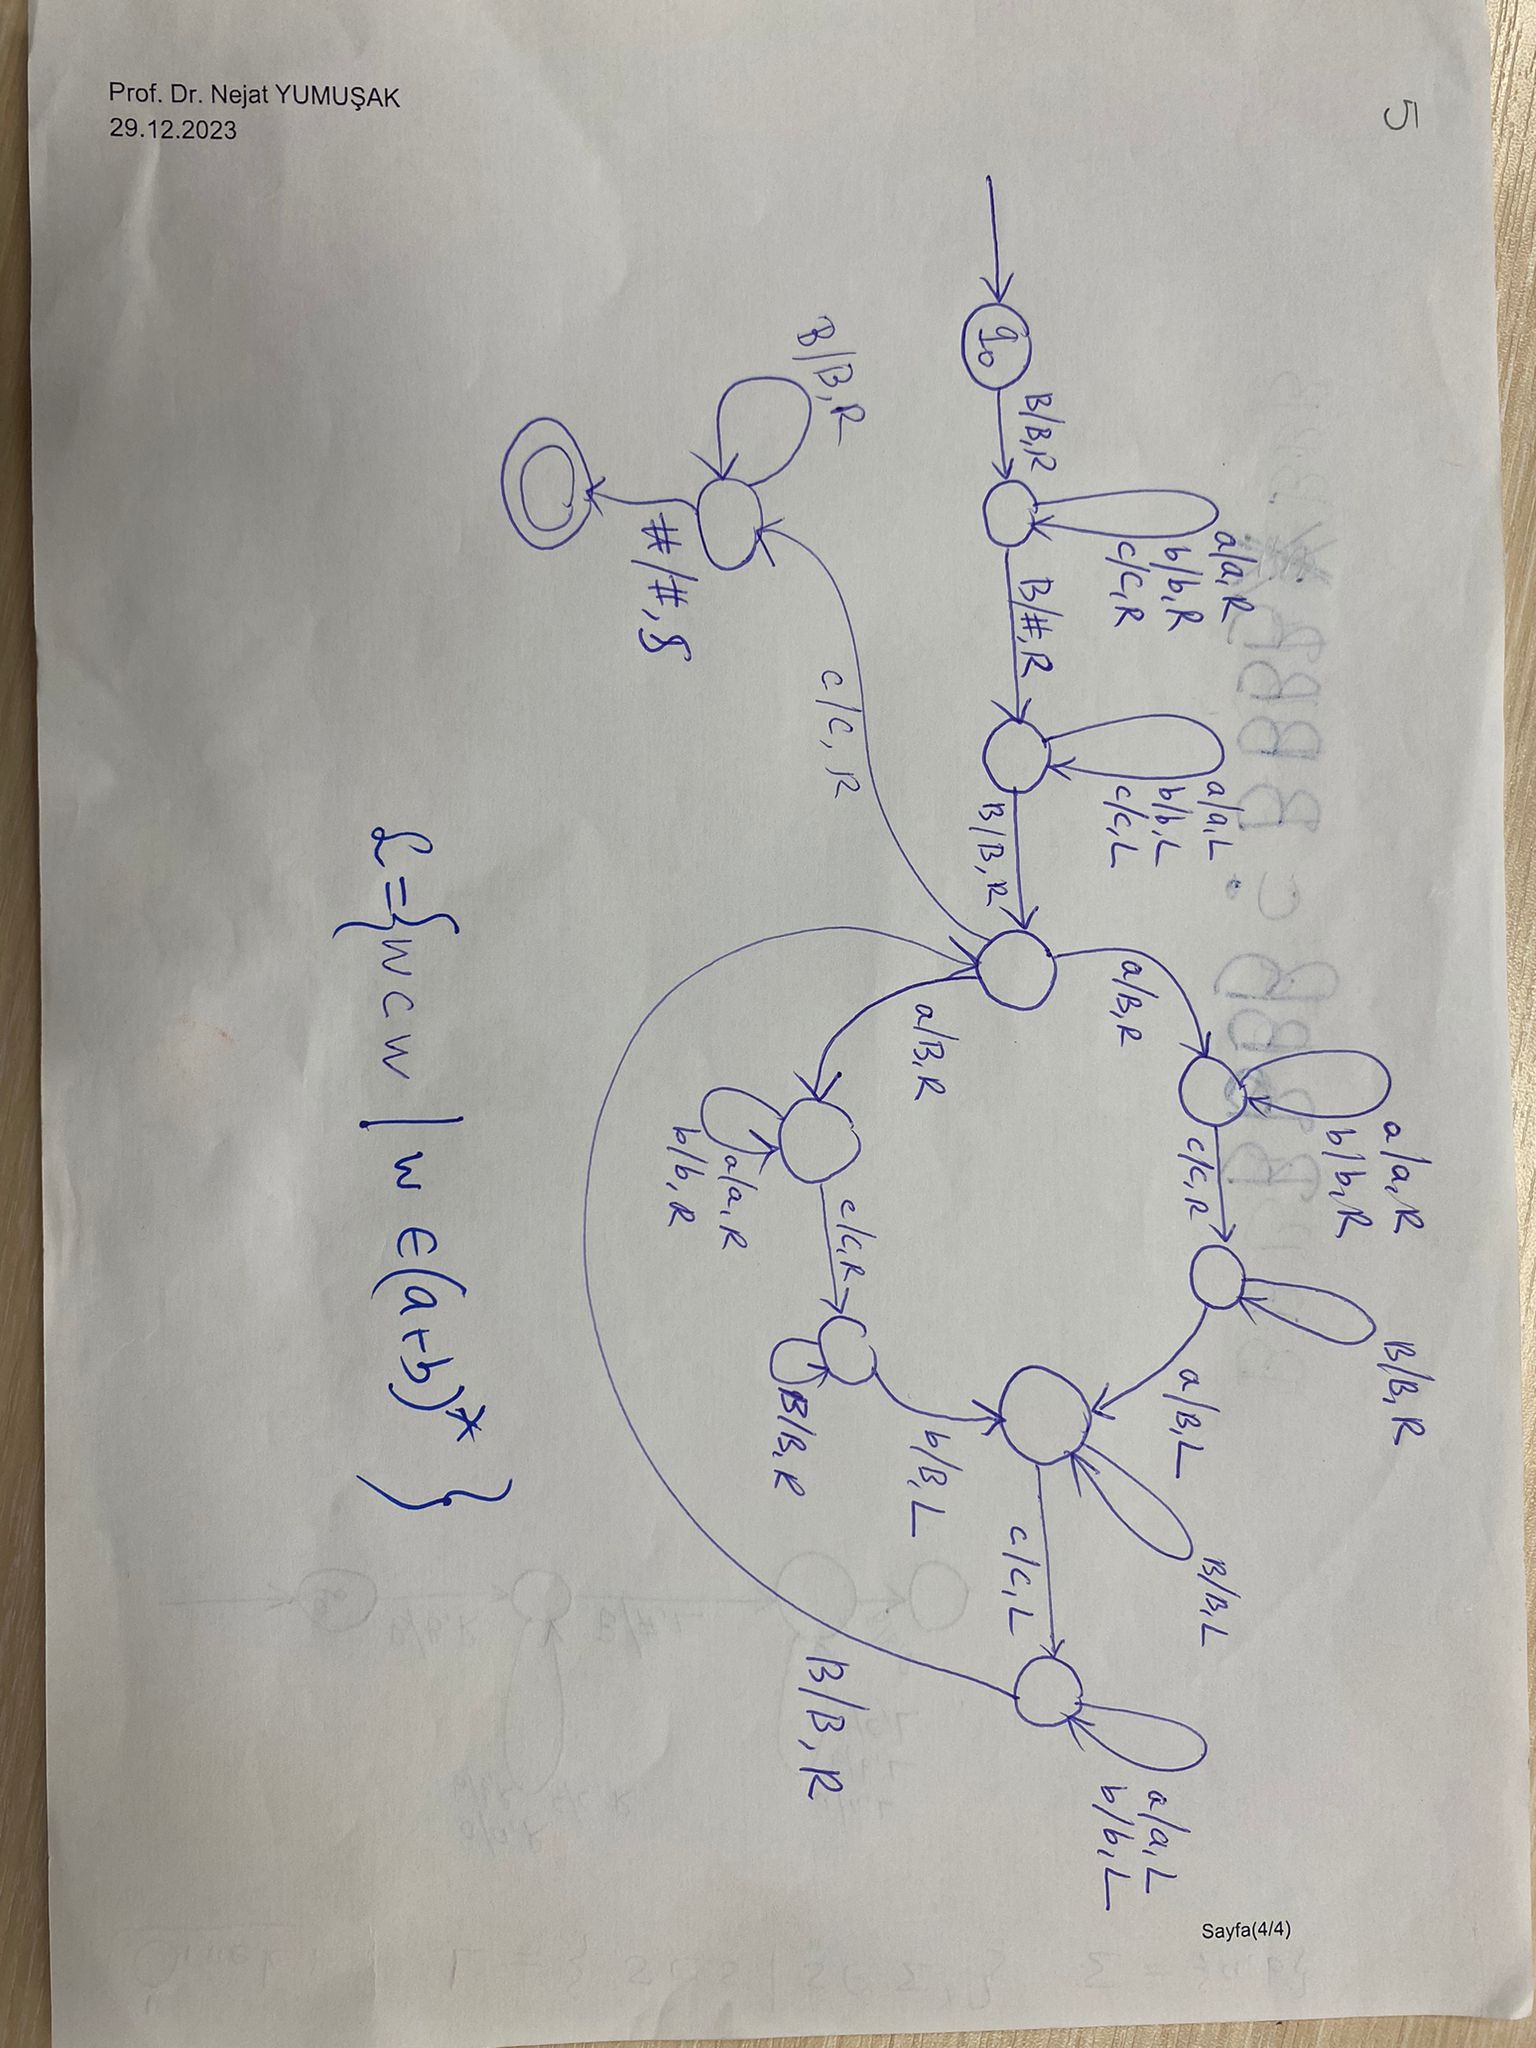 Prof. Dr. Nejat YUMUŞAK
29.12.2023
5
q0
B/B,R
a/a,R
b/b,R
c/c,R
B/#,R
a/a,L
b/b,L
c/c,L
B/B,R
a/B,R
a/a,R
b/b,R
c/c,R
B/B,R
a/B,L
B/B,L
c/c,L
a/a,L
b/b,L
B/B,R
a/B,R
a/a,R
b/b,R
c/c,R
B/B,R
b/B,L
c/c,R
B/B,R
#/#,S
L={wcw | w ∈(a+b)*}
Sayfa(4/4)